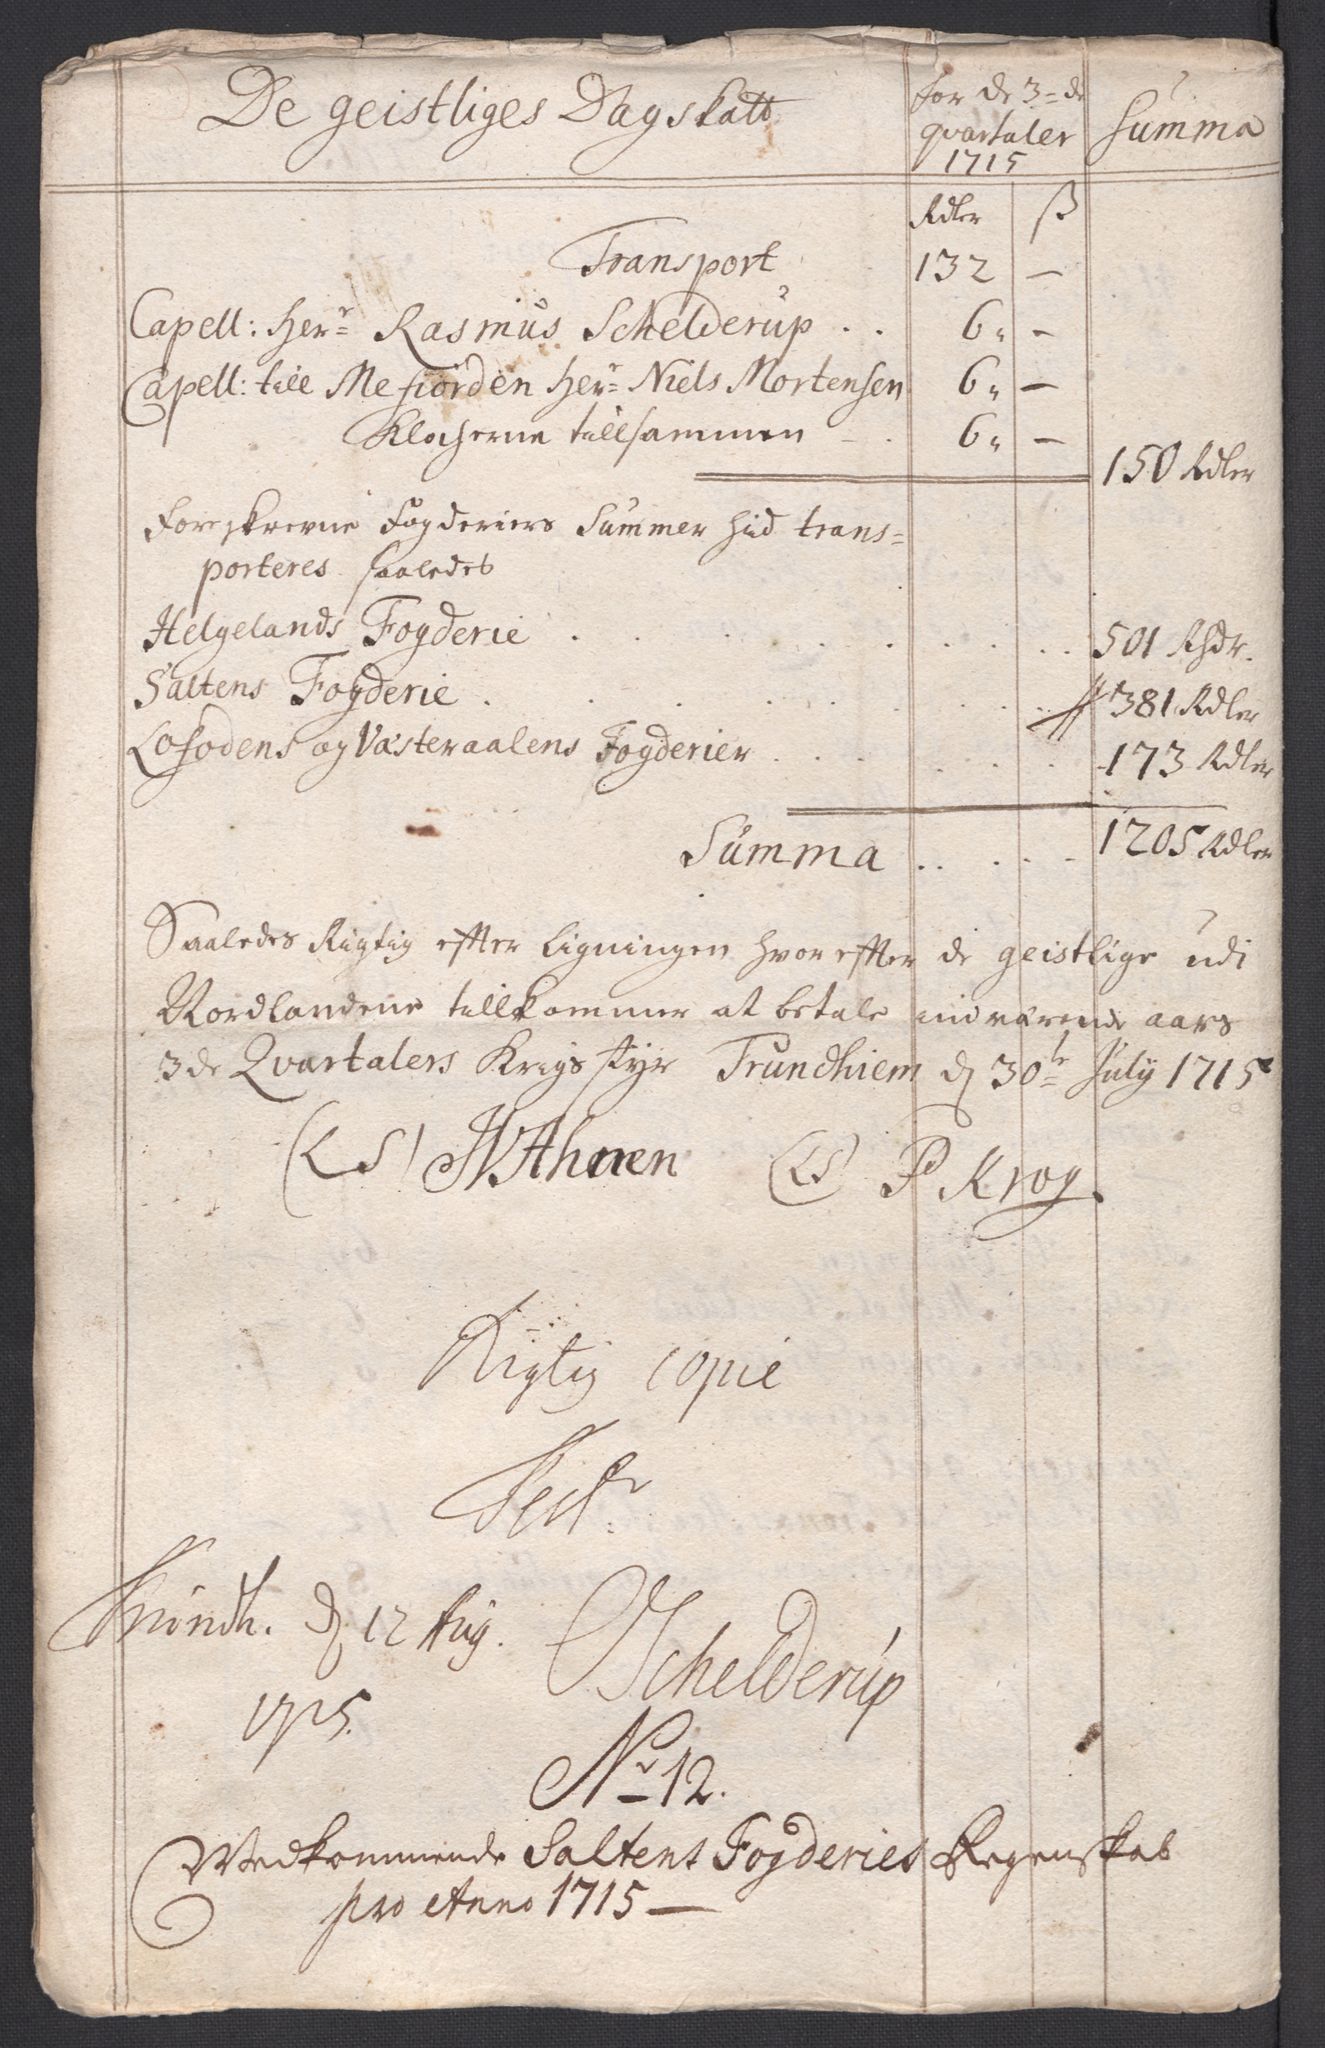 De geistliges Dagskatt
for de 3=de
qvartaler
1715
Summa
Rdler ß
Transport 132 —
Capell: Her= Rasmus Schelderup . . 6„ —
Capell: till Mefiorden Her= Niels Mortensen 6„ —
Klocherne tillsammen 6„ —
150 Rdler
Foreskrevne Fogderiers Summer hid trans=
porteres saaledes
Helgelands Fogderie . . . . . . 501 Rhdr.
Saltens Fogderie . . . . . . 381 Rdler
Lofodens og Væsteraalens Fogderier . . . . . 173 Rdler
Summa . . . . . 1205 Rdler
Saaledes Rigtig efter Ligningen hvor effter de geistlige udi
Nordlandene tillkommer at betale indværende aars
3de Qvartalers Krigs styr Trundhiem d 30te July 1715
(LS) HVAhnen (LS) P Krog.
Rigtig copie
Test:
Trundh. d 12 Aug.
1715.
Schelderup
Nr 12.
Wedkommende Saltens Fogderies Regenskab
pro Anno 1715 —